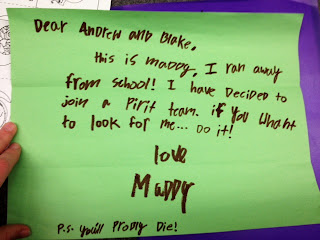 Dear Andrew and Blake,
this is maddy, I ran away
from school! I have Decided to
join a Pirit team. if you Whant
to look for me... Do it!
love
Maddy
P.s. You'll Probly Die!